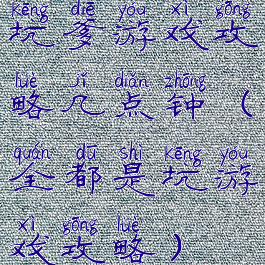 kēng diē yóu xì gōng
坑爹游戏攻
luè jǐ diǎn zhōng
略几点钟（
quán dū shì kēng yóu
全都是坑游
xì gōng luè
戏攻略）